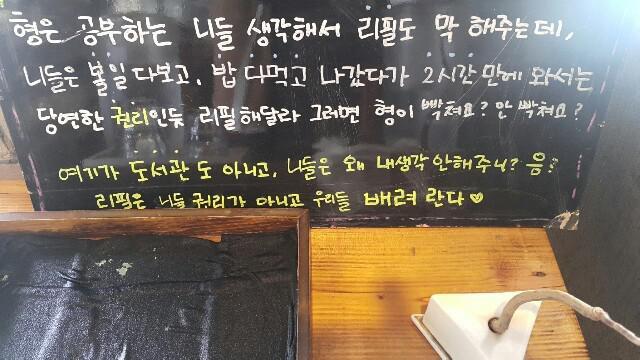 형은 공부하는 니들 생각해서 리필도 막 해주는데,
니들은 볼일 다보고, 밥 다먹고 나갔다가 2시간 만에 와서는
당연한 권리인듯 리필해달라 그러면 형이 빡쳐요? 안 빡쳐요?
여기가 도서관도 아니고, 니들은 왜 내생각 안해주니? 음?
리필은 니들 권리가 아니고 우리들 배려 란다♥